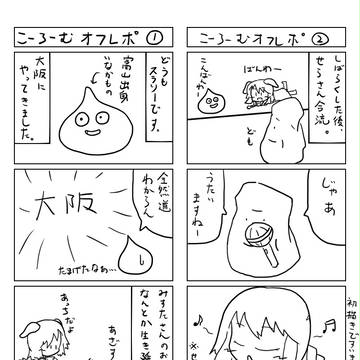 こーろーむオフレポ①
どうも
スラリーです。
富山出身
なかもの
大阪に
やってきました。
全然道
わからん
大阪
たまげたなぁ…
みすたさんのお
なんとか生き延
あっちだよ
あざす
こーろーむオフレポ②
しばらくした後、
せろさん合流。
ばんわー
こんばんわー
ども
じゃあ
うたい
ますねー
初描きです